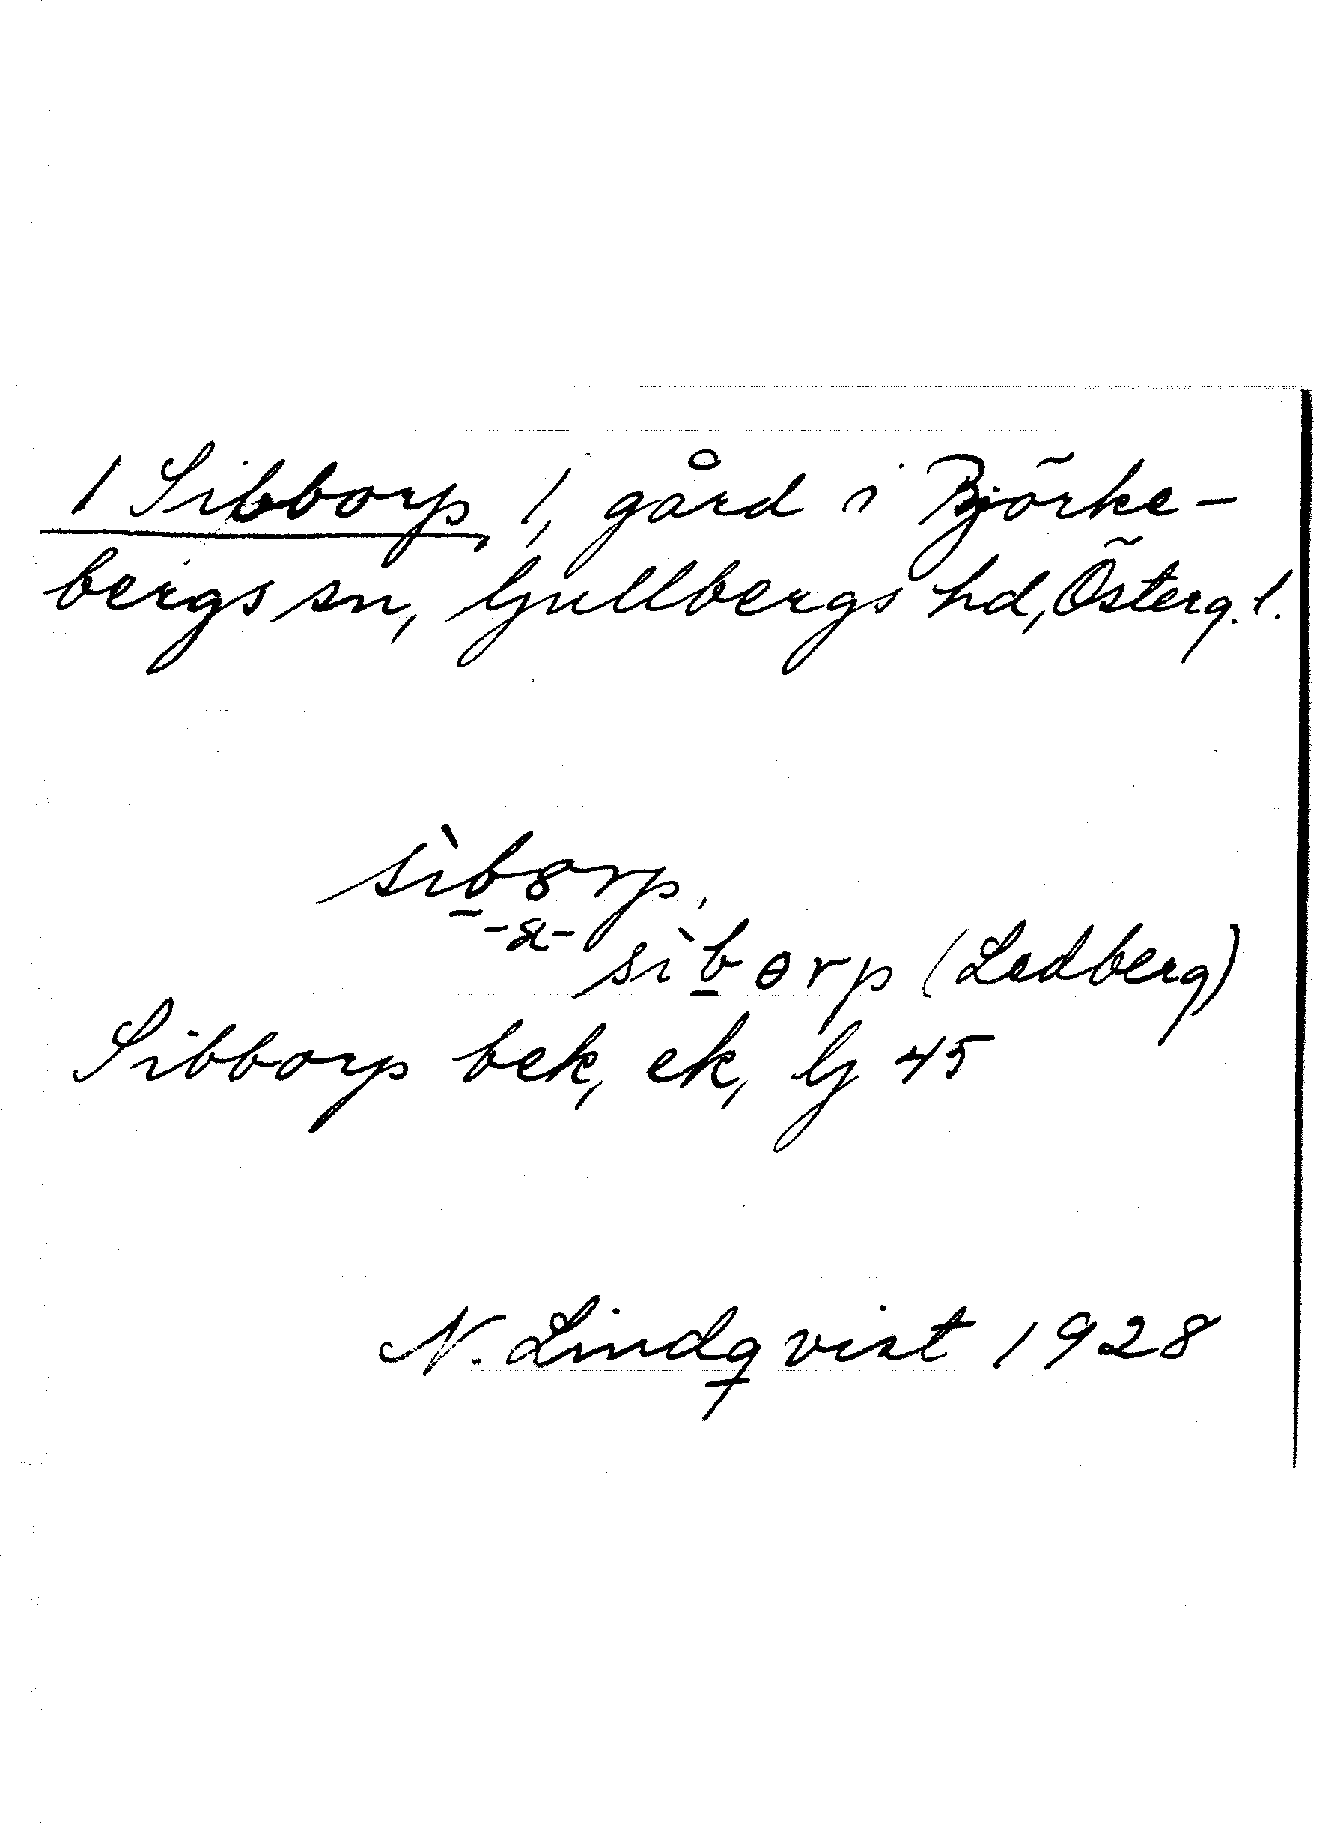 1 Sibborp, 1, gård i Björke-
bergs sn, Gullbergs hd, Österg. l.
sìb̲ȣrp,
-a-
sìb̲ɵrp (Ledberg)
Sibborp bek, ek, Gj 45
N. Lindqvist 1928